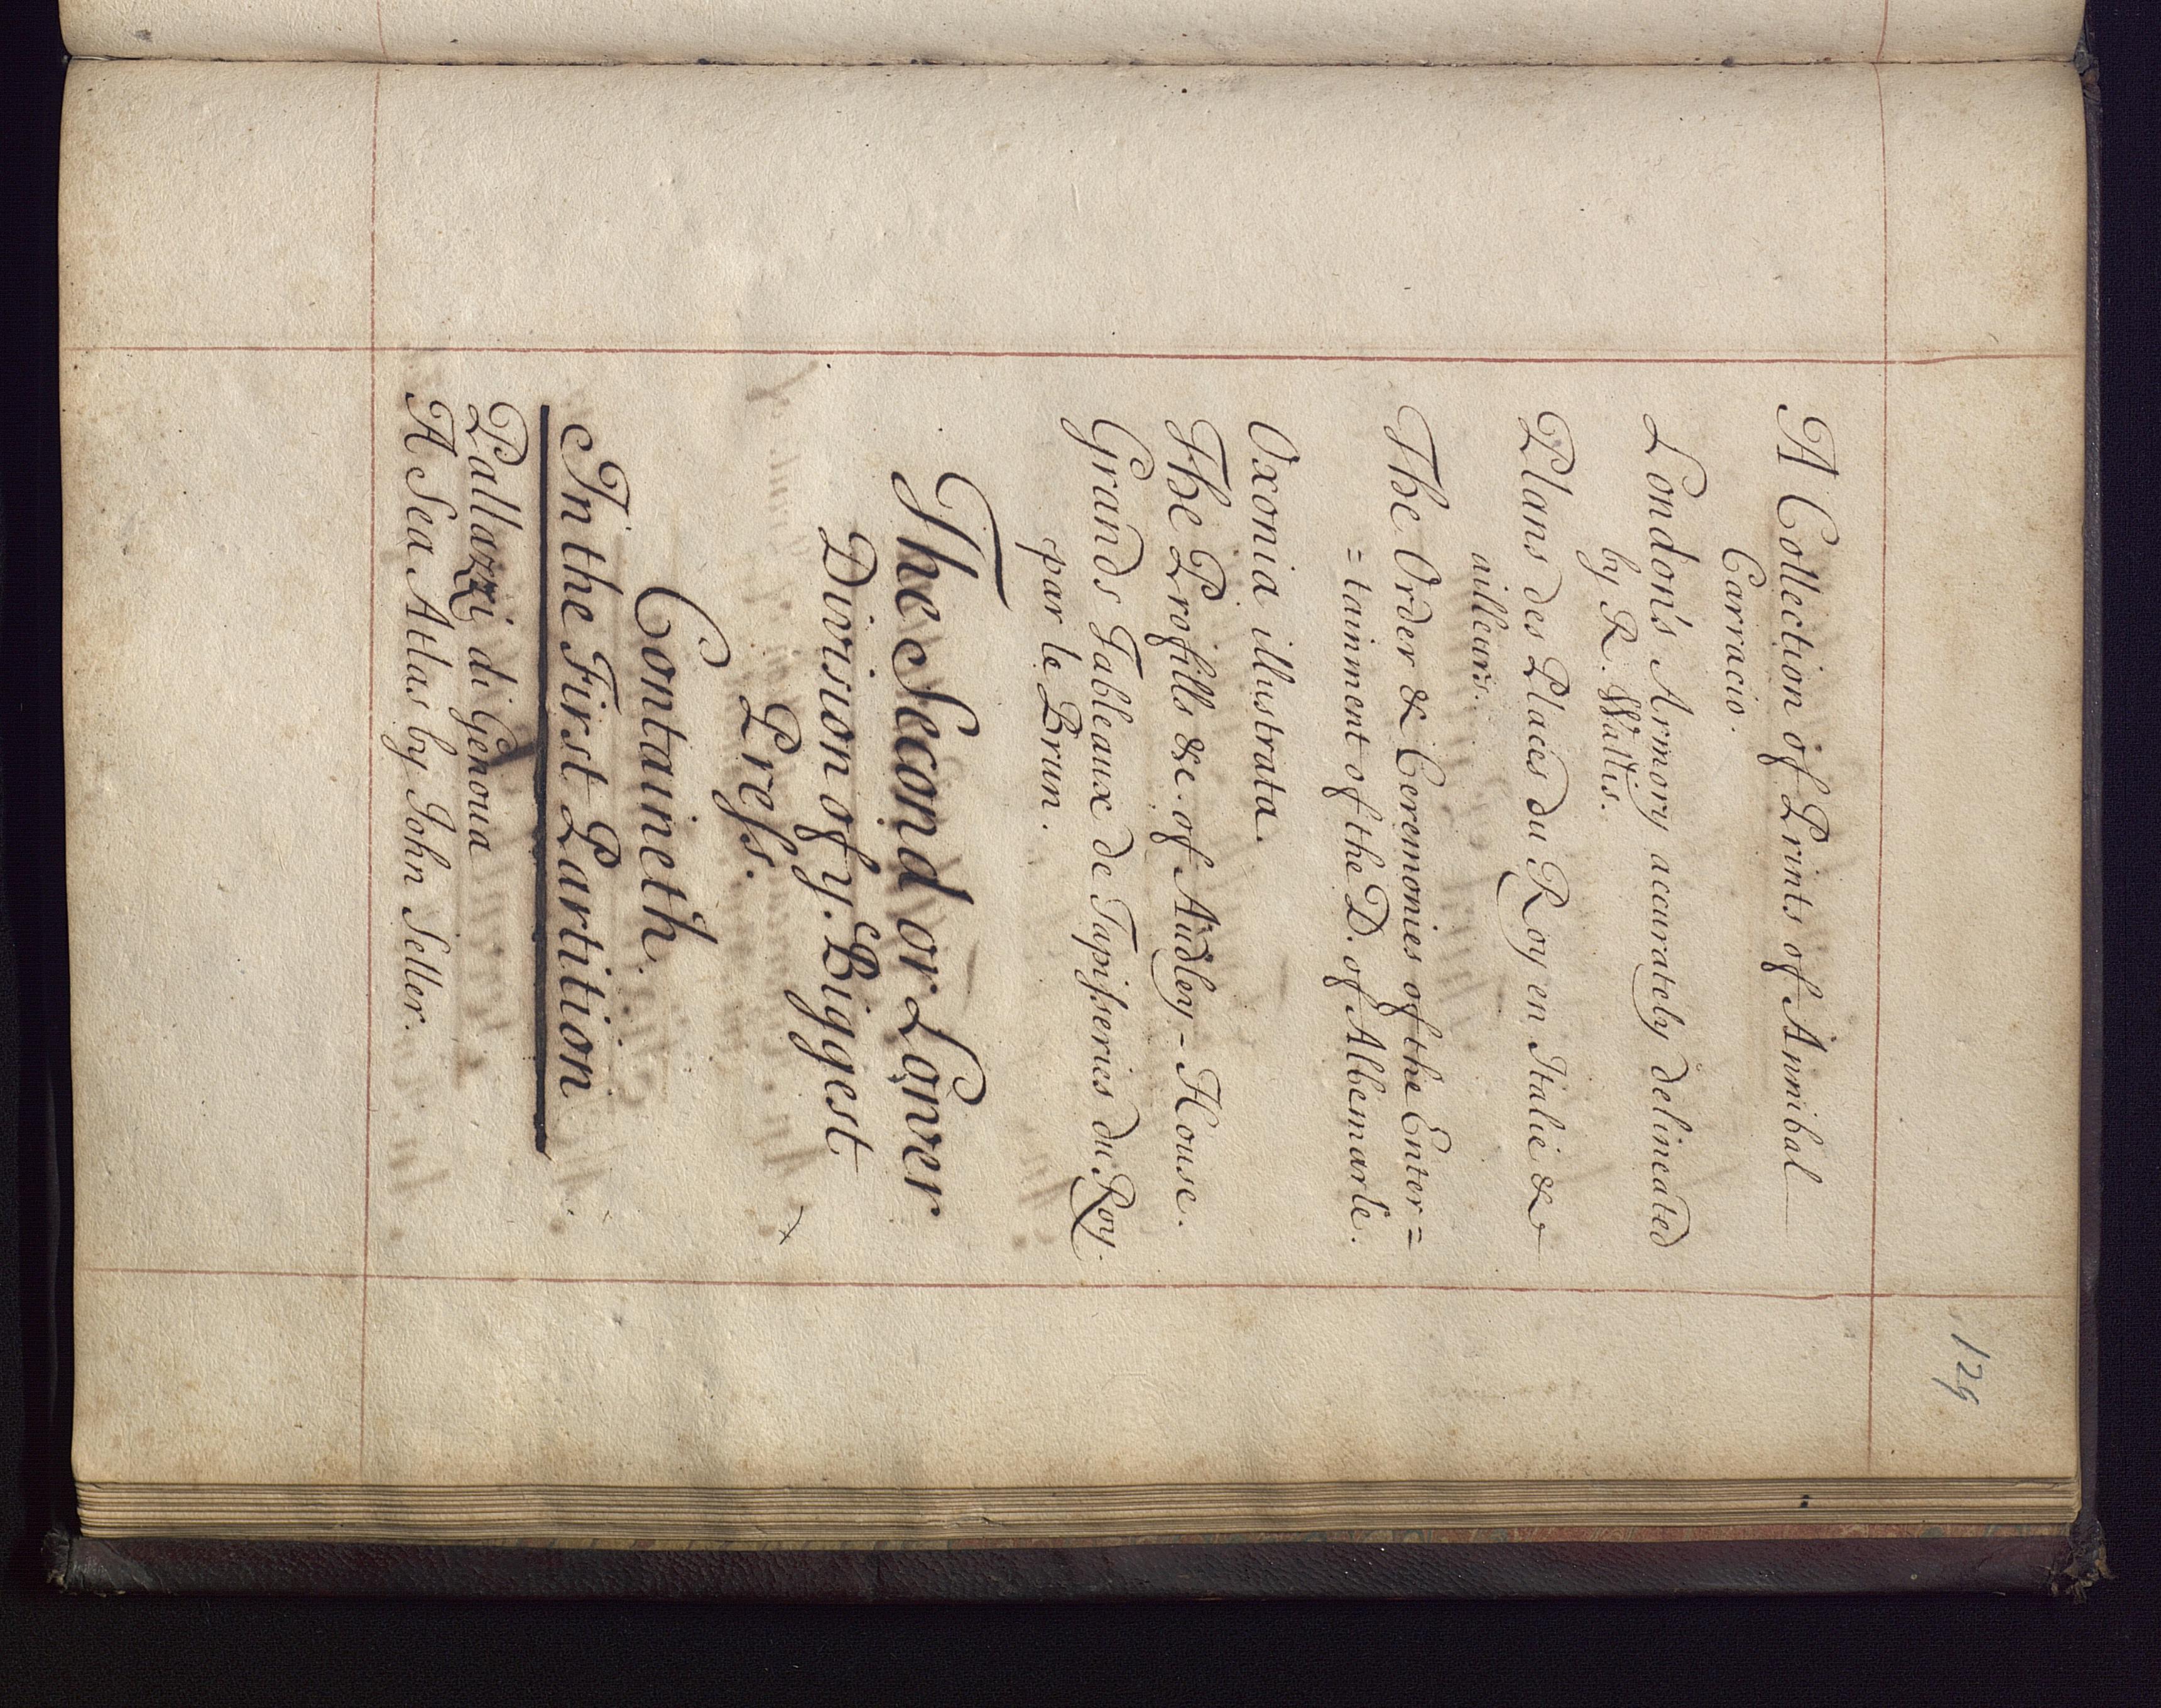 129
A Collection of Prints of Annibal
Carracio.
London's Armory accurately delineated
by R. Wallis.
Plans des Places du Roy en Italie &
ailleurs.
The Order & Ceremonies of the Enter=
=tainment of the D. of Albemarle.
Oxonia illustrata.
The Profills &c. of Audley-House.
Grands Tableaux de Tapisseries du Roy.
par le Brun.
The Second or Lower
Division of y. Biggest
Press.
Containeth.
In the First Partition
Pallazzi di Genoua
A Sea Atlas by John Seller.